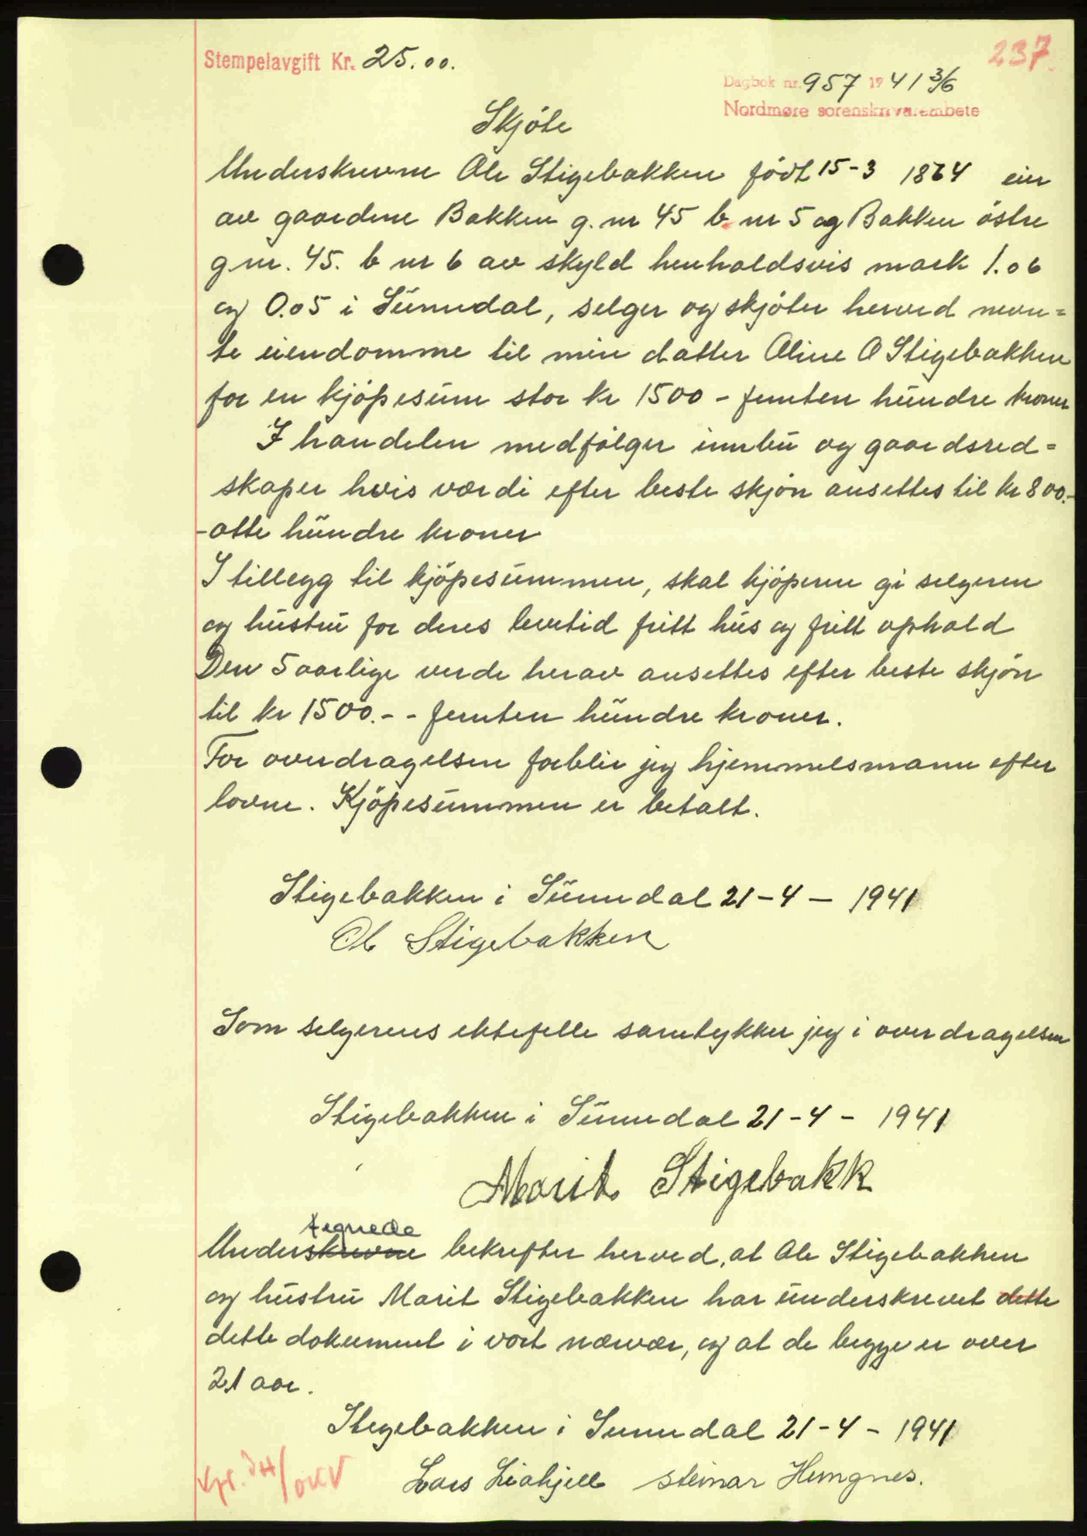 237.
Stempelavgift Kr. 25.00.
Dagbok nr. 957 1941 3/6
Nordmøre sorenskriverembete
Skjöte
Underskrevne Ole Stigebakken födt 15-3 1874 eier
av gaardene Bakken g. nr 45 b. nr 5 og Bakken östre
g nr. 45. b nr 6 av skyld henholdsvis mark 1.06
og 0.05 i Sunndal, selger og skjöter herved nevn=
te eiendomme til min datter Oline O Stigebakken
for en kjöpesum stor kr 1500 - femten hundre kroner
I handelen medfölger innbu og gaardsred=
skaper hvis værdi efter beste skjön ansettes til kr 800.-
-otte hundre kroner
I tillegg til kjöpesummen, skal kjöperen gi selgeren
og hustru for deres levetid fritt hus og fritt ophold
Den 5 aarlige verde herav ansettes efter beste skjön
til kr 1500.-- femten hundre kroner.
For overdragelsen forblir jeg hjemmelsmann efter
lovne. Kjöpesummen er betalt.
Stigebakken i Sunndal 21-4-1941
Ole Stigebakken
Som selgerens ektefelle samtykker jeg i overdragelsen
Stigebakken i Sunndal 21-4-1941
Marit Stigebakk
tegnede
Underskrevne bekrefter herved, at Ole Stigebakken
og hustru Marit Stigebakken har underskrevet dette
dette dokument i vort nærvær, og at de begge er over
21 aar.
Stigebakken i Sunndal 21-4-1941
Lars Liahjell Steinar Hungnes.